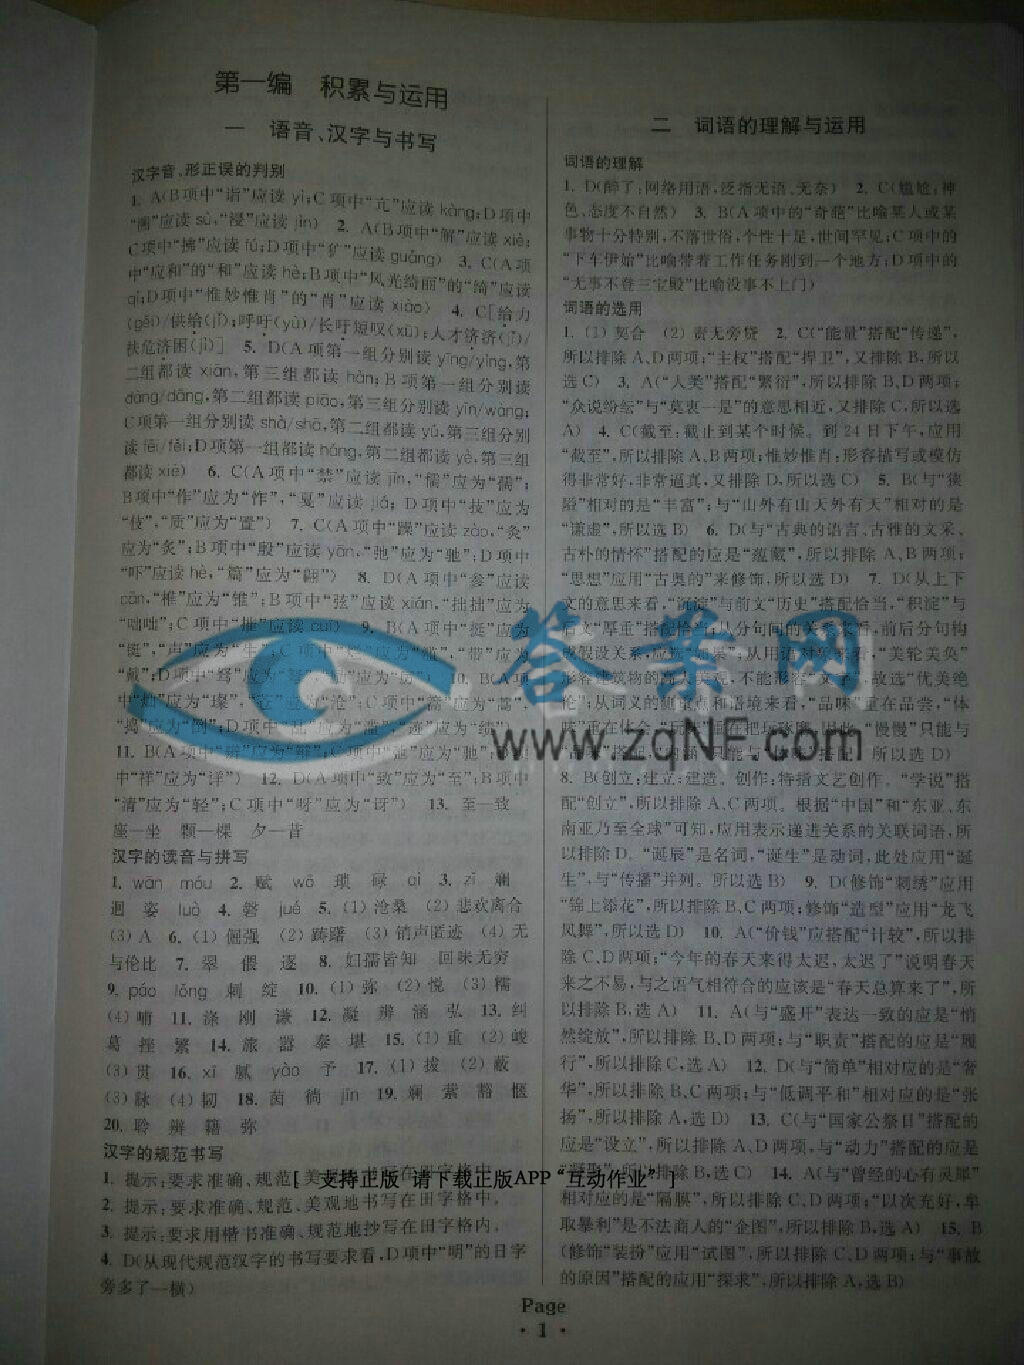 第一编　积累与运用
一　语音、汉字与书写
汉字音、形正误的判别
1. A(B项中“诣”应读yì;C项中“亢”应读kàng;D项中
应读sù,“浸”应读jìn)　2. A(B项中“解”应读xiè;
C项中“拂”应读fú;D项中“犷”应读guǎng)　3. C(A项
中“应和”的“和”应读hè;B项中“风光绮丽”的“绮”应读
qǐ;D项中“惟妙惟肖”的“肖”应读xiào)　4. C[给力
(gěi)/供给(jǐ);呼吁(yù)/长吁短叹(xū);人才济济(jǐ)/
扶危济困(jì)]　5. D(A项第一组分别读yīng/yìng,第
二组都读xiān,第三组都读hān;B项第一组分别读
dàng/dāng,第二组都读piāo,第三组分别读yīn/wāng;
C项第一组分别读shà/shā,第二组都读yǔ,第三组分别
读fēi/fěi;D项第一组都读háng,第二组都读yè,第三组
都读xiè)　6. C(A项中“禁”应读jīn,“儒”应为“孺”;
B项中“作”应为“怍”,“戛”应读jiá;D项中“技”应为
“伎”,“质”应为“置”)　7. C(A项中“躁”应读zào,“灸”
应为“炙”;B项中“殷”应读yān,“弛”应为“驰”;D项中
“吓”应读hè,“篇”应为“翩”)　8. D(A项中“参”应读
cān,“椎”应为“锥”;B项中“弦”应读xián,“拙拙”应为
“咄咄”;C项中“推”应读cuī)　9. B(A项中“挺”应为
11. B(A项中“辨”应为“辩”;C项中“弛”应为“驰”;D项
中“祥”应为“洋”)　12. D(A项中“致”应为“至”;B项中
“清”应为“轻”;C项中“呀”应为“讶”)　13. 至—致
座—坐　颗—棵　夕—昔
汉字的读音与拼写
1. wān　móu　2. 赋　wō　琐　碌　qì　3. zī　斓
迥　姿　luò　4. 磐　jué　5. (1) 沧桑　(2) 悲欢离合
(3) A　6. (1) 倔强　(2) 踌躇　(3) 销声匿迹　(4) 无
与伦比　7. 翠　偎　逐　8. 妇孺皆知　回味无穷
9. páo　lǒng　刺　绽　10. (1) 弥　(2) 悦　(3) 糯
(4) 哺　11. 涤　刚　谦　12. 凝　辨　涵　弘　13. 纠
葛　挫　繁　14. 旅　嚣　泰　堪　15. (1) 重　(2) 峻
(3) 贯　16. xī　腻　yào　予　17. (1) 拨　(2) 蔽
(3) 脉　(4) 韧　18. 茵　徜　jīn　19. 斓　紫　豁　惬
20. 聆　辨　籍　弥
汉字的规范书写
1. 提示:要求准确、规范
2. 提示:要求准确、规范、美观地书写在田字格中。
3. 提示:要求用楷书准确、规范地抄写在田字格内。
4. D(从现代规范汉字的书写要求看,D项中“明”的日字
旁多了一横)
二　词语的理解与运用
词语的理解
1. D(醉了:网络用语,泛指无语、无奈)　2. C(尴尬:神
色、态度不自然)　3. B(A项中的“奇葩”比喻某人或某
事物十分特别,不落世俗,个性十足,世间罕见;C项中的
“下车伊始”比喻带着工作任务刚到一个地方;D项中的
“无事不登三宝殿”比喻没事不上门)
词语的选用
1. (1) 契合　(2) 责无旁贷　2. C(“能量”搭配“传递”,
所以排除A、D两项;“主权”搭配“捍卫”,又排除B,所以
选C)　3. A(“人类”搭配“繁衍”,所以排除B、D两项;
“众说纷纭”与“莫衷一是”的意思相近,又排除C,所以选
A)　4. C(截至:截止到某个时候。到24日下午,应用
“截至”,所以排除A、B两项;惟妙惟肖:形容描写或模仿
得非常好,非常逼真,又排除D,所以选C)　5. B(与“狭
隘”相对的是“丰富”;与“山外有山天外有天”相对的是
“谦虚”,所以选B)　6. D(与“古典的语言、古雅的文采、
古朴的情怀”搭配的应是“蕴藏”,所以排除A、B两项;
“思想”应用“古奥的”来修饰,所以选D)　7. D(从上下
文的意思来看,“沉淀”与前文“历史”搭配恰当,“积淀”与
后文“厚重”搭配恰当;从分句间的关系来看,前后分句构
成假设关系,应选“如果”;从用语对象来看,“美轮美奂”
形容建筑物的高大美观,不能形容“文字”,故选“优美绝
伦”;从词义的侧重点和语境来看,“品味”重在品尝,“体
8. B(创立:建立;建造。创作:特指文艺创作。“学说”搭
配“创立”,所以排除A、C两项。根据“中国”和“东亚、东
南亚乃至全球”可知,应用表示递进关系的关联词语,所
以排除D。“诞辰”是名词,“诞生”是动词,此处应用“诞
生”,与“传播”并列。所以选B)　9. D(修饰“刺绣”应用
“锦上添花”,所以排除B、C两项;修饰“造型”应用“龙飞
凤舞”,所以选D)　10. A(“价钱”应搭配“计较”,所以排除
C、D两项;“今年的春天来得太迟,太迟了”说明春天
来之不易,与之语气相符合的应该是“春天总算来了”,所
以排除B,选A)　11. A(与“盛开”表达一致的应是“悄
然绽放”,所以排除B、D两项;与“职责”搭配的应是“履
行”,所以排除C,选A)　12. D(与“简单”相对应的是“奢
华”,所以排除B、C两项;与“低调平和”相对应的是“张
扬”,所以排除A,选D)　13. C(与“国家公祭日”搭配的
应是“设立”,所以排除A、D两项,与“动力”搭配的应是
“凝聚”,所以排除B,选C)　14. A(与“曾经的心有灵犀”
相对应的是“隔膜”,所以排除C、D两项;“以次充好,牟
取暴利”是不法商人的“企图”,所以排除B,选A)　15. B
(修饰“装扮”应用“试图”,所以排除C、D两项;与“事故
的原因”搭配的应用“探求”,所以排除A,选B)
支持正版　请下载正版APP“互动作业”
答案网
www.zqNF.com
Page
· 1 ·